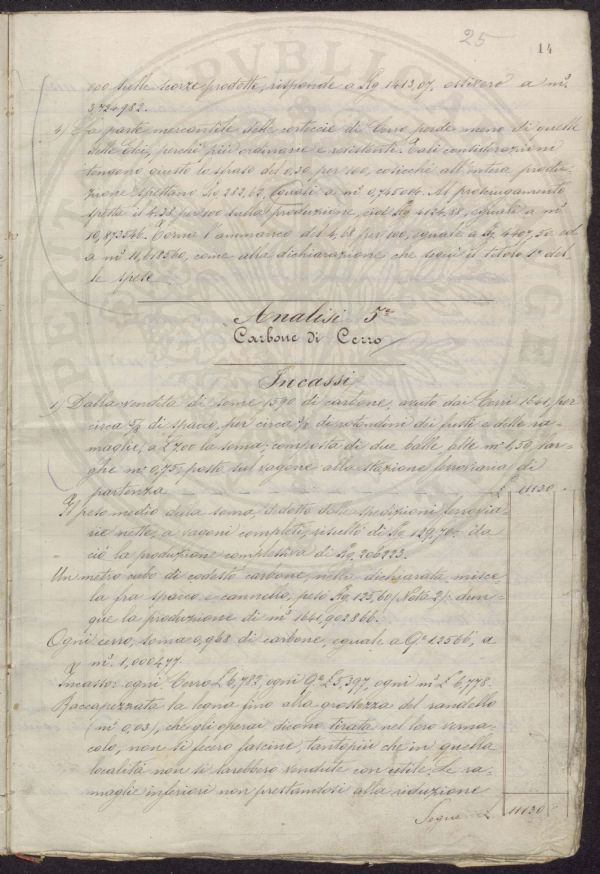 25
14
100 sulle scorze prodotte, risponde a Kg 1413,07, ossivero a m³.
3,724982.
4) La parte mercantile delle corteccie di Cerro perde meno di quelle
delle Elci, perchè più ordinarie e resistenti. Tasi considerazioni
tengono giusto lo sfraso del 0,30 per 100, cosicchè all'intera produ-
zione spettano Kg 282,62, eguali a m³ 0,745004. Al prosciugamento
spetta il 4.38 per 100 sulla produzione, cioè Kg 4124,88, eguali a m³
10,873546. Torna l'ammanco del 4,68 per 100, eguale a Kg 4407,50 od
a m³ 11,618550, come alla dichiarazione che seguì il titolo 1º del-
le spese.
Analisi 5ª
Carbone di Cerro
Incassi
1) Dalla vendita di some 1590 di carbone, avuto dai Cerri 1641, per
circa ⅔ di spacco, per circa ⅓ di rotondini dei fusti e delle ra-
maglie, a £ 7.00 la soma, composta di due balle, alte m. 1,50, lar-
ghe m. 0,75, posto sul vagone alla stazione ferroviaria di
partenza £ 11130
Il peso medio della soma, dedotto dalle spedizioni ferrovia-
rie nette, a vagoni completi, risultò di Kg 129,70: da
ciò la produzione complessiva di Kg 206223.
Un metro cubo di codesto carbone, nella dichiarata misce-
la fra spacco e cannello, pesò Kg 125,60 (Nota 2): dun-
que la produzione di m³ 1641,902866.
Ogni cerro, soma 0,968 di carbone, eguale a Qe 1.2566, a
m³. 1,000477.
Incasso: ogni Cerro £ 6,782, ogni Qe £ 5,397, ogni m³ £ 6,778.
Raccapezzata la legna fino alla grossezza del randello
(m. 0,03), che gli operai dicono tirata nel loro verna-
colo, non si fecero fascine, tantopiù che in quella
località non si sarebbero vendute con utile. Le ra-
maglie inferiori non prestandosi alla riduzione
Segue £ 11130